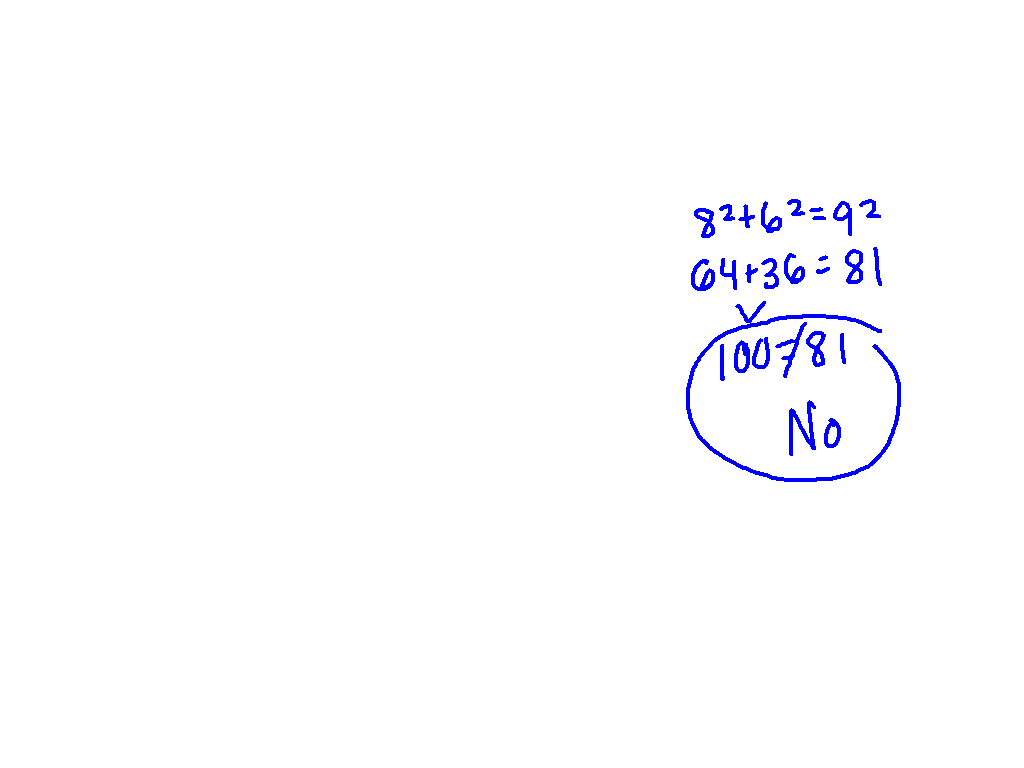 8²+6²=9²
64+36=81
100≠81
No